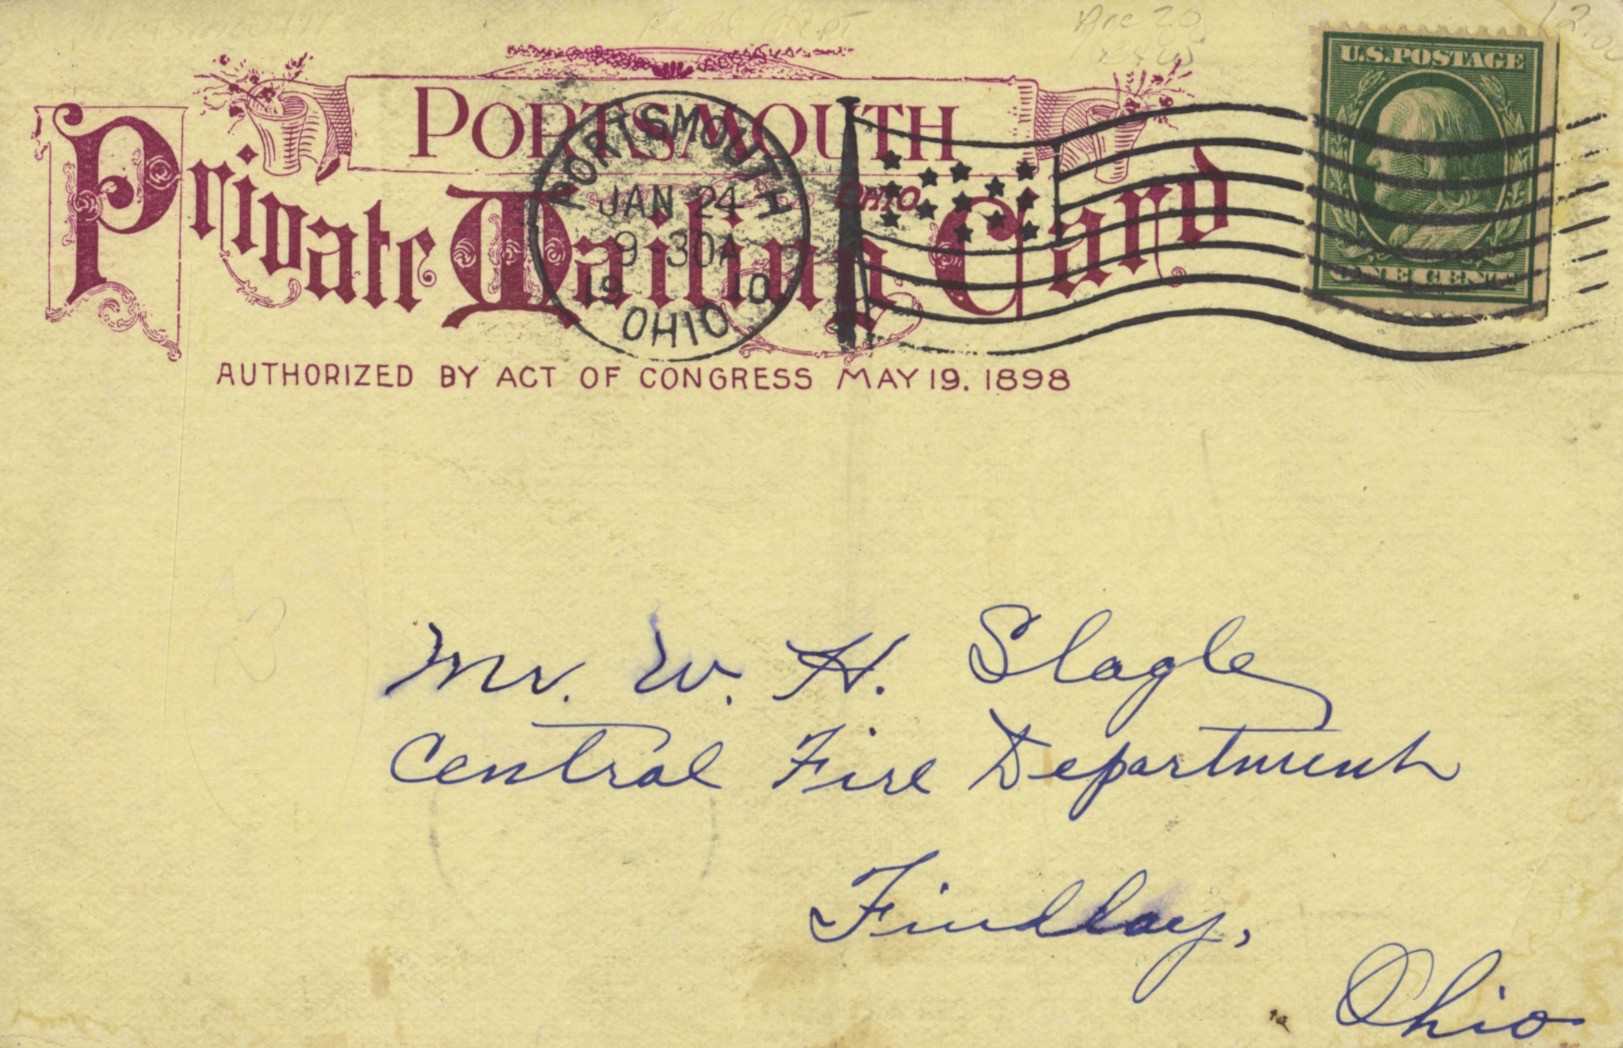 U.S. POSTAGE
PORTSMOUTH
OHIO
Private Mailing Card
AUTHORIZED BY ACT OF CONGRESS MAY 19. 1898
PORTSMOUTH
JAN 24
9 30A
19 10
OHIO
ONE CENT
Mr. W. H. Slagle
Central Fire Department
Findlay,
Ohio